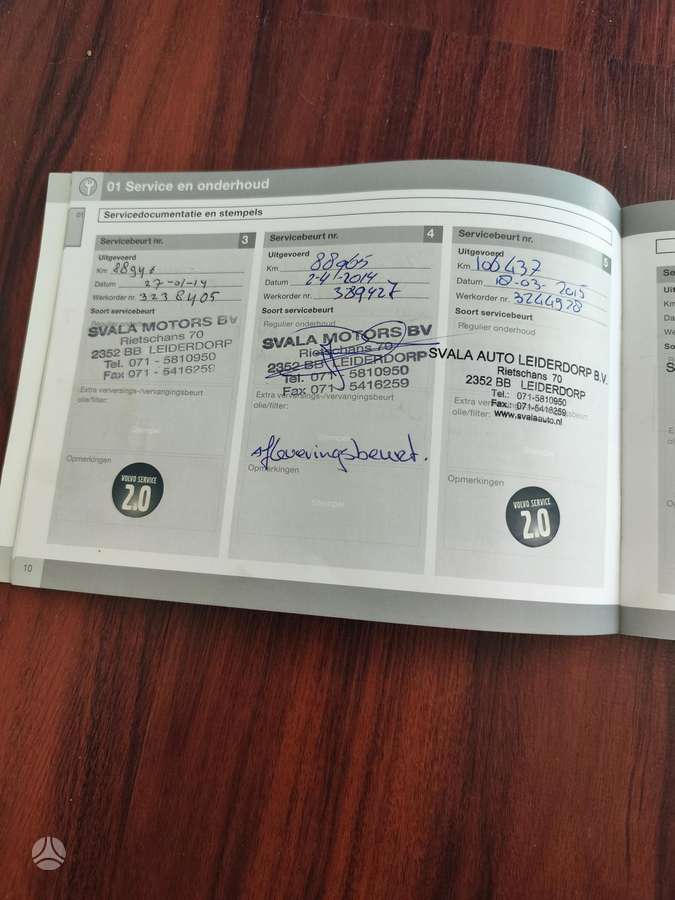 01 Service en onderhoud
01
Servicedocumentatie en stempels
Servicebeurt nr. 3
Uitgevoerd
Km 88946
Datum 27-01-14
Werkorder nr. 3238405
Soort servicebeurt
SVALA MOTORS BV
Rietschans 70
2352 BB LEIDERDORP
Tel. 071 - 5810950
Fax 071 - 5416259
Extra verversings-/vervangingsbeurt
olie/filter:
Stempel
Opmerkingen
VOLVO SERVICE
2.0
Servicebeurt nr. 4
Uitgevoerd
Km 88965
Datum 2-4-2014
Werkorder nr. 389427
Soort servicebeurt
Regulier onderhoud
SVALA MOTORS BV
Rietschans 70
2352 BB LEIDERDORP
Tel. 071 - 5810950
Fax 071 - 5416259
Extra verversings-/vervangingsbeurt
olie/filter:
afleveringsbeurt.
Opmerkingen
Stempel
Servicebeurt nr. 5
Uitgevoerd
Km 106437
Datum 18-03-2015
Werkorder nr. 3244928
Soort servicebeurt
Regulier onderhoud
SVALA AUTO LEIDERDORP B.V.
Rietschans 70
2352 BB LEIDERDORP
Tel.: 071-5810950
Fax.: 071-5416259
www.svalaauto.nl
olie/filter:
Opmerkingen
VOLVO SERVICE
2.0
10